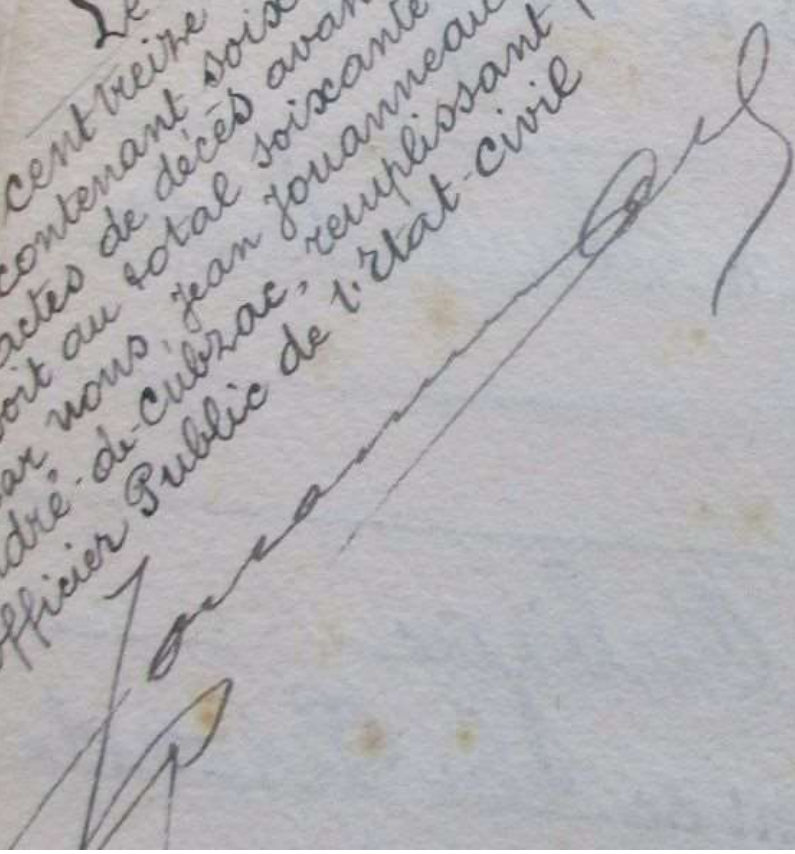 Le
cent treize
contenant soix
actes de décès avan
oit au total soixante
ar nous, Jean Jouanneau
dré-de-Cubzac, remplissant
officier Public de l'Etat-Civil
Jouanneau